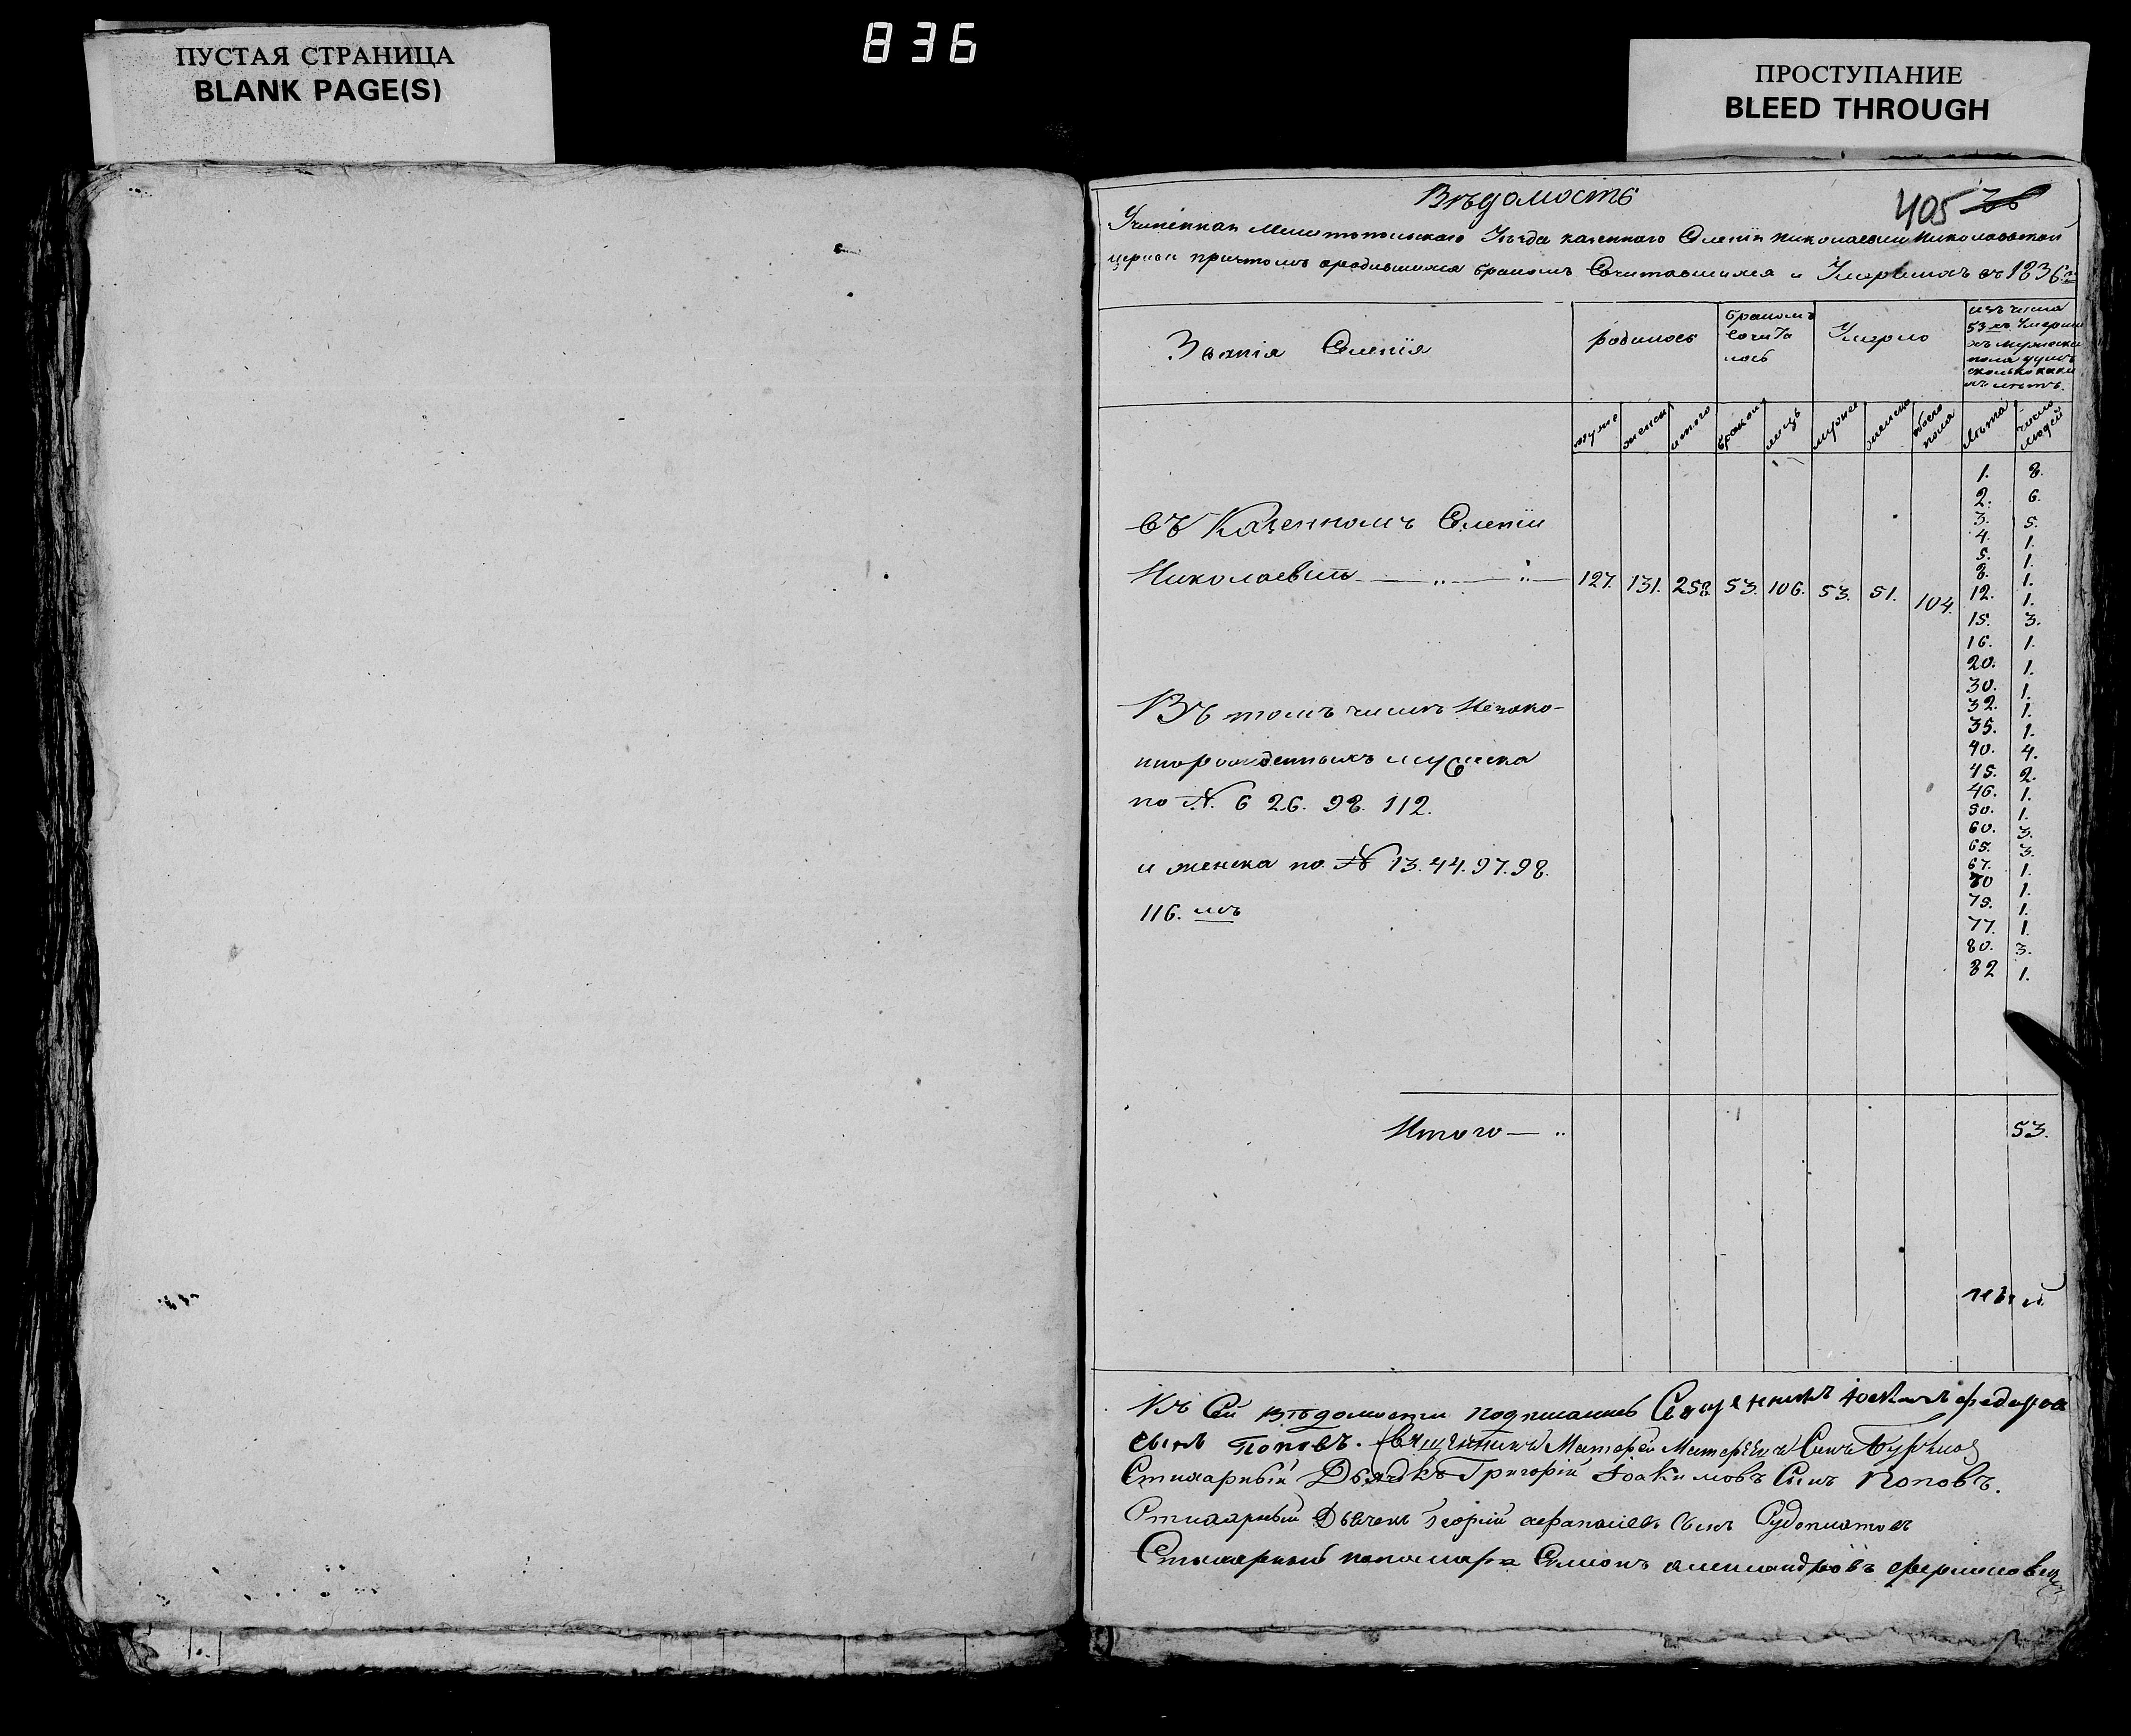 836
ПУСТАЯ СТРАНИЦА
BLANK PAGE(S)
ПРОСТУПАНИЕ
BLEED THROUGH
405 36
Вѣдомость
Учиненная Мелитопольскаго Уѣзда казенного Селенія Николаевки Николаевской
церкви причтомъ о родившихся бракомъ Сочитавшихся и Умершихъ въ 1836
Званія Селенія
родилось
бракомъ Сочита лось
Умерло
изъ числа
53хъ Умерши
хъ мужеска
пола душъ
сколько каки
хъ лѣтъ.
муже женск итого браков лицъ мужес женска обоего пола лѣта число людей
въ Казенномъ Селеніи
Николаевкѣ 127. 131. 258. 53. 106. 53. 51. 104.
1. 8.
2. 6.
3. 5.
4. 1.
5. 1.
8. 1.
12. 1.
15. 3.
16. 1.
20. 1.
30. 1.
32. 1.
35. 1.
40. 4.
45. 2.
46. 1.
50. 1.
60. 3.
65. 3.
67. 1.
70 1.
75. 1.
77. 1.
80. 3.
82 1.
Въ томъ числѣ Незако-
ннорожденныхъ мужеска
по №. 6 26. 98. 112.
и женска по № 13. 44. 97. 98.
116. мъ
Итого 53.
Къ Сей вѣдомости подписались Священникъ Іоакимъ федоровъ
сынъ Поповъ. Священникъ Матфей Матфѣевъ Сынъ
Стихарный Дьячокъ Григорій Іоакимовъ Сынъ Поповъ.
Стихарный Дьячекъ Георгій сынъ
Стихарный пономарь Симонъ александровъ